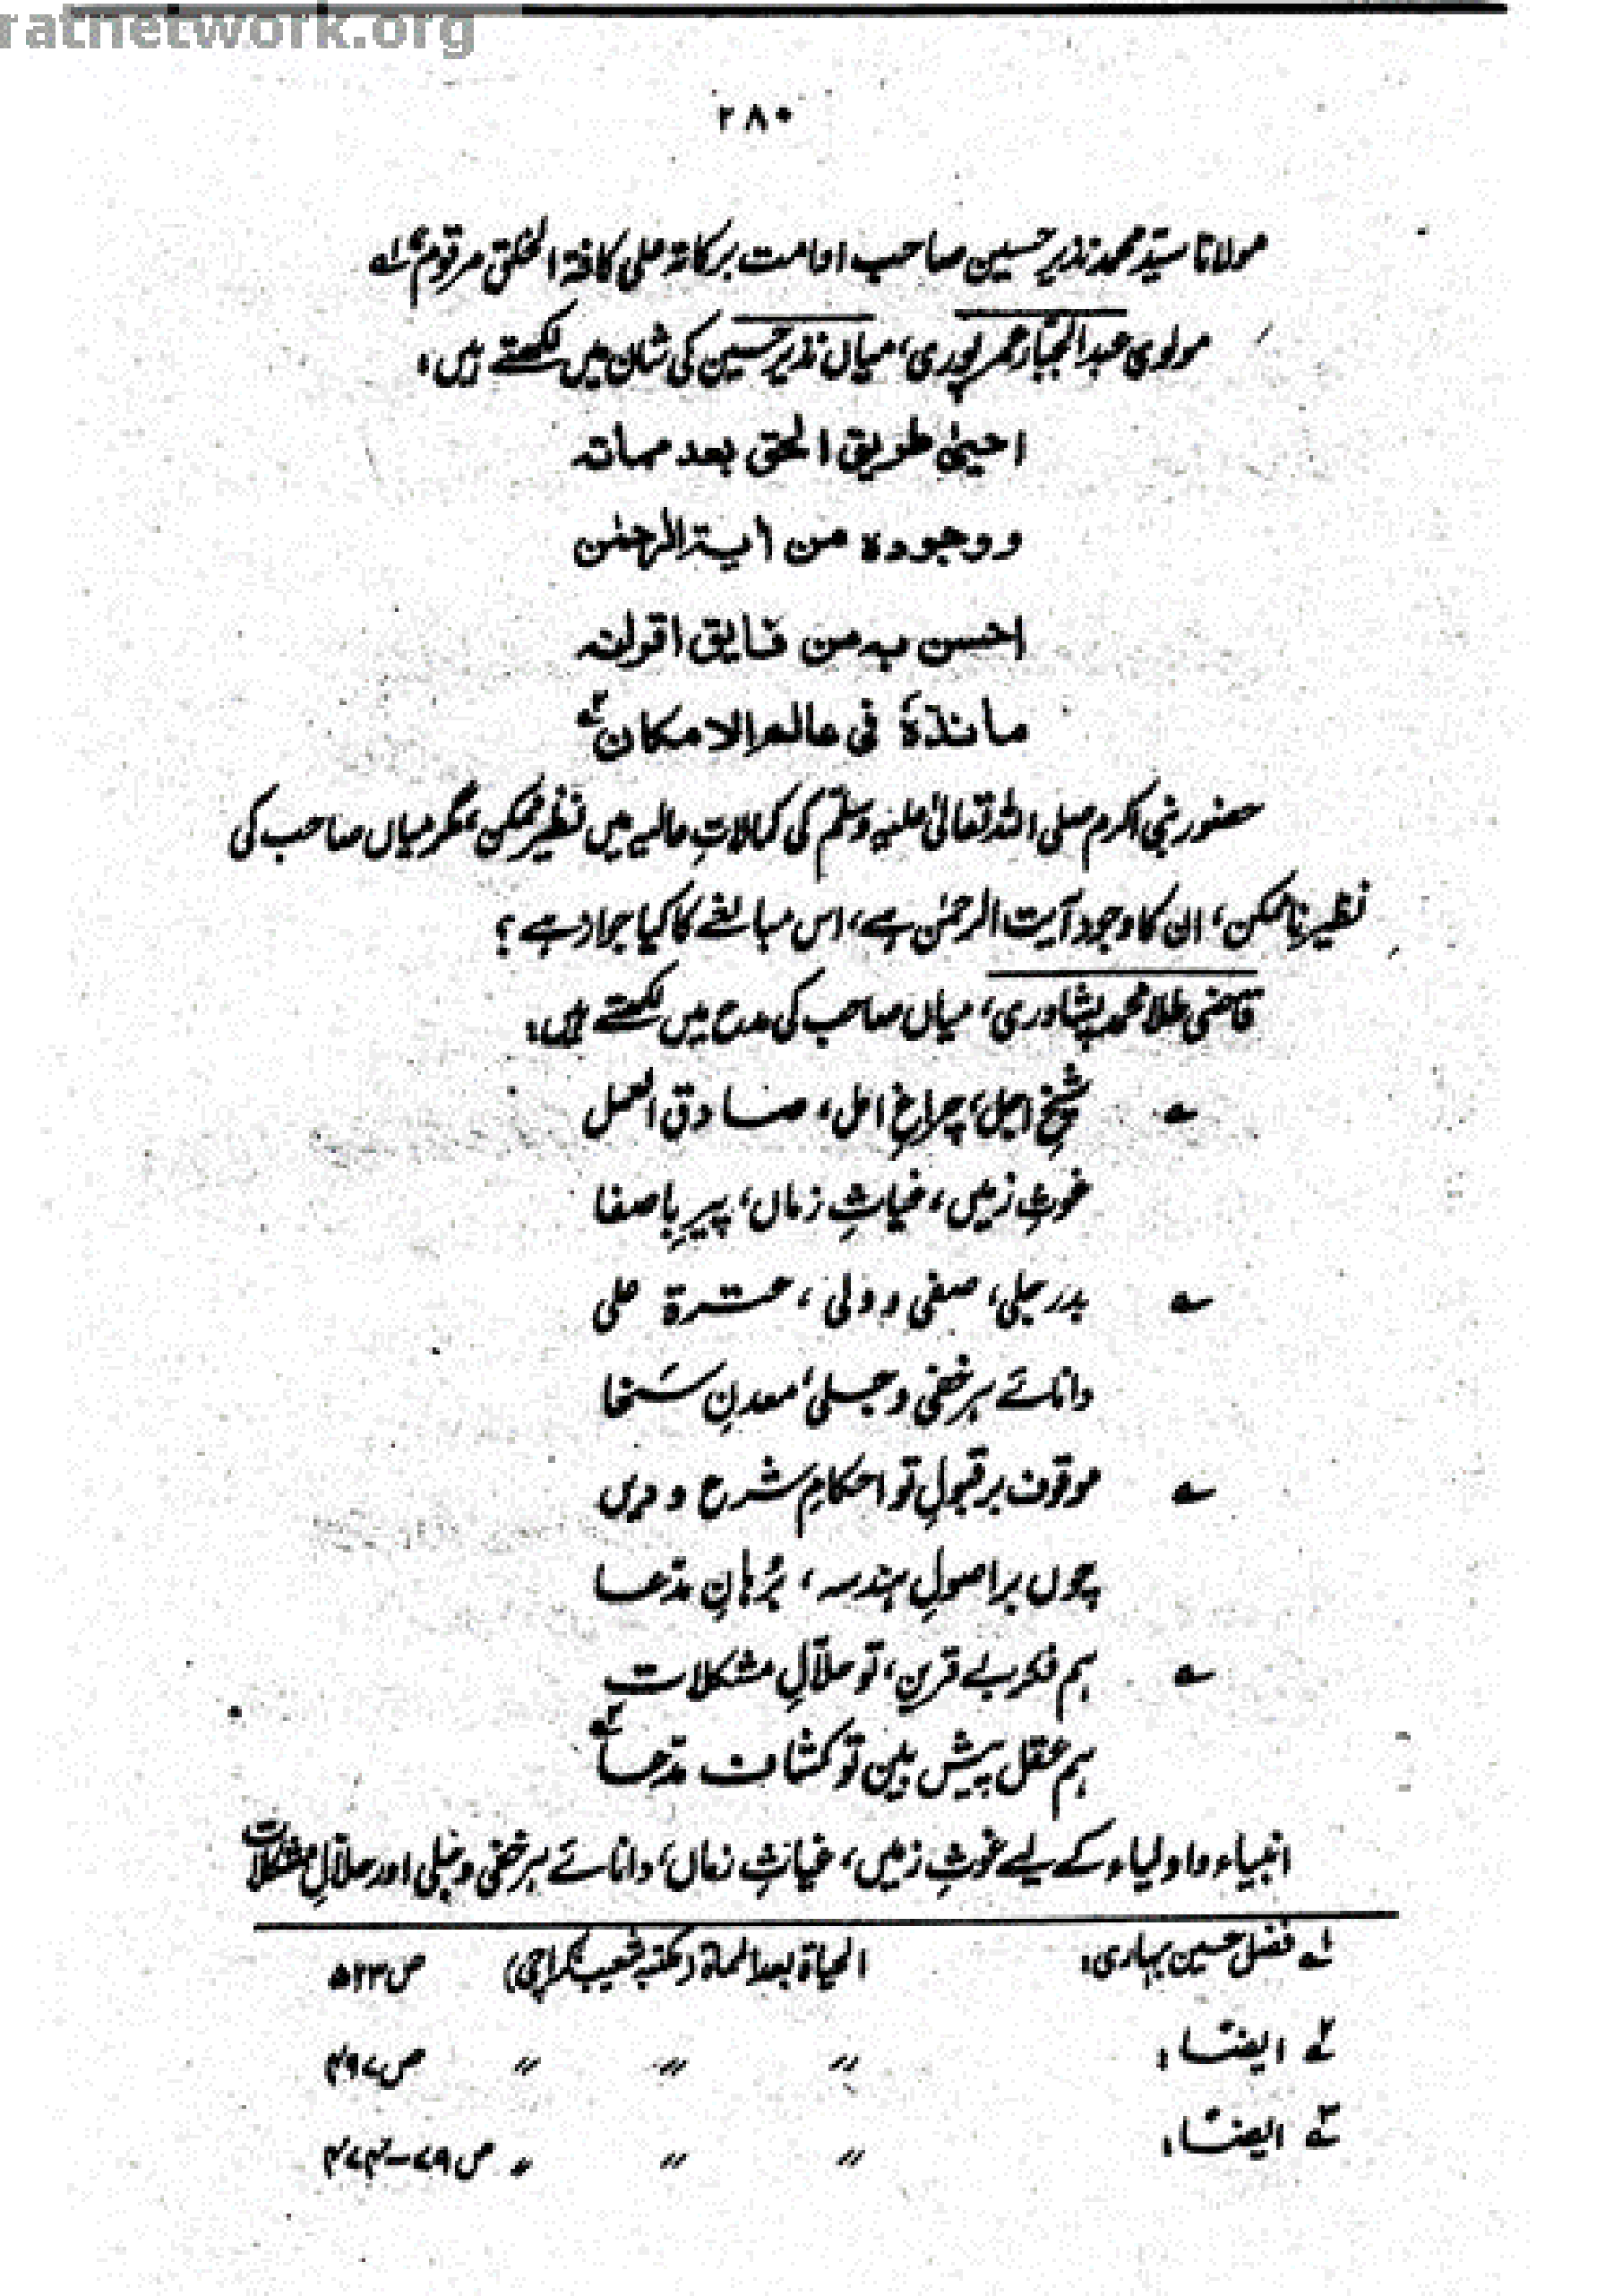 ratnetwork.org
۲۸۰
مولانا سیّد محمد نذیر حسین صاحب ادامت برکاتہ علی کافۃ الخلق مرقوم ہے لہ
مولوی عبدالجبّار عمرپوری، میاں نذیر حسین کی شان میں لکھتے ہیں:
احییٰ طریق الحق بعد مماتہ
ووجودہ من اٰیۃ الرحمٰن
احسن بہ من فایق اقرانہ
ماندّہٗ فی عالم الامکان ۲ہ
حضور نبی اکرم صلی اللہ تعالیٰ علیہ وسلّم کی کمالاتِ عالیہ میں نظیر ممکن، مگر میاں صاحب کی
نظیر ناممکن، ان کا وجود آیت الرحمٰن ہے، اس مبالغے کا کیا جواز ہے؟
قاضی طلا محمد پشاوری، میاں صاحب کی مدح میں لکھتے ہیں:
؎ شیخِ اجل، چراغِ امل، صادق العمل
غوثِ زمیں، غیاثِ زماں، پیرِ باصفا
؎ بدر جلی، صفی و ولی، عترۃ علی
دانائے ہر خفی و جلی، معدنِ سَخا
؎ موقوف بر قبولِ تو احکامِ شرع و دیں
چوں بر اصولِ ہندسہ، بُرہانِ مدّعا
؎ ہم فکر بے قرینِ، تو حلّالِ مشکلات
ہم عقل پیش بینِ تو کشاف مدّعا ۳ہ
انبیاء و اولیاء کے لیے غوثِ زمیں، غیاثِ زماں، دانائے ہر خفی و جلی اور حلّالِ مشکلات
لہ فضل حسین بہاری: الحیاۃ بعد المماۃ (مکتبہ شعیب، کراچی) ص ۵۲۳
۲ہ ایضًا: 〃 〃 〃 ص ۴۹۷
۳ہ ایضًا: 〃 〃 〃 ص ۷۹-۴۷۴